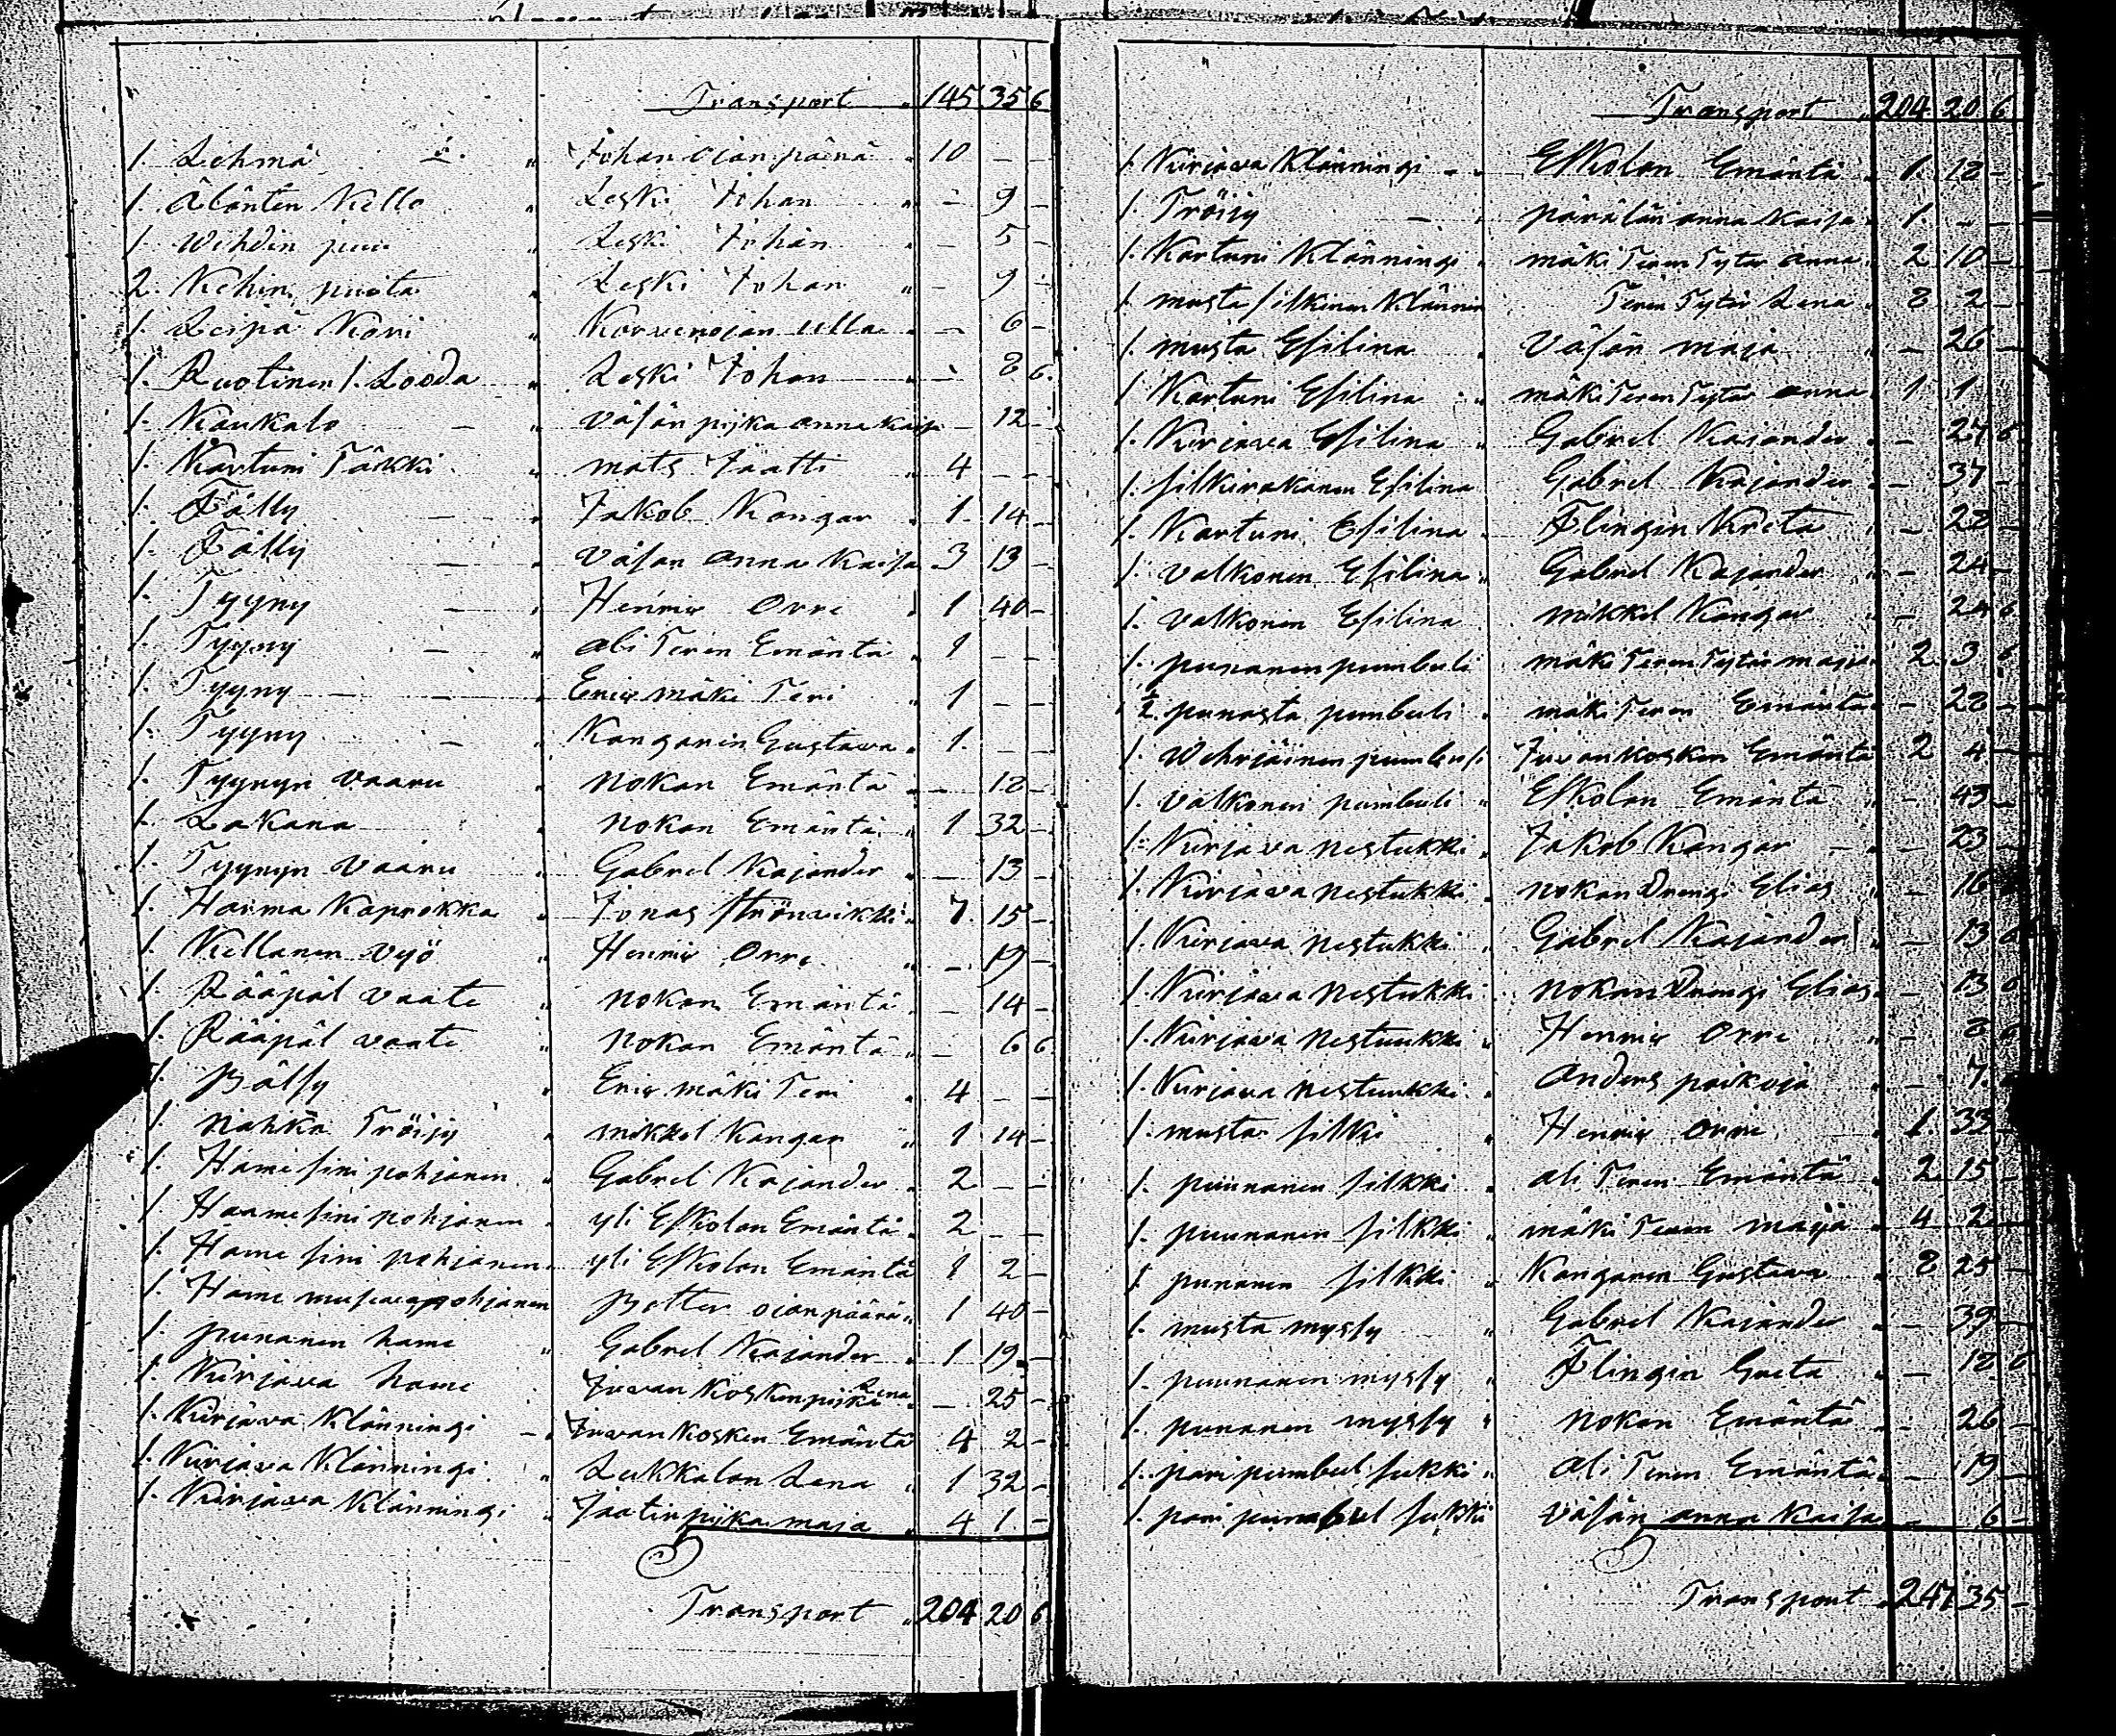 Transport „ 145 35 6
1. Lehmä „ Johan ojanpänä „ 10 – –
1. Älänten Kello „ Leski Johan „ – 9 –
1. Wihdin puu „ Leski Johan „ – 5 –
2. Kehin puota „ Leski Johan „ – 9 –
1. Leipä Kori „ Korvenojan ulla „ – 6 –
1. Ruotinen 1. Looda „ Leski Johan „ – 8 6.
1. Kaukalo „ väsän pijka anna kaisa – 12 –
1. Kartuni Täkki „ mats Jaatti „ 4 – –
1. Fälly „ Jakob Kangar „ 1. 14 –
1. Fälly „ väsän anna Kaisa 3 13 –
1. Tyyny „ Henric Orre „ 1 40 –
1. Tyyny „ ali Teren Emäntä „ 1 – –
1. Tyyny „ Eric mäki Teri „ 1 – –
1. Tyyny „ Kangarin Gustava „ 1. – –
1. Tyynyn vaaru „ nokan Emäntä „ – 18 –
1. Lakana „ nokan Emäntä „ 1 32 –
1. Tyynyn vaaru „ Gabrel Kajander „ – 13 –
1. Harma Kaprokka „ Jonas strömvikki „ 7. 15 –
1. Kellanen vyö „ Henric Orre „ – 19 –
1. Rääpäl vaate „ nokan Emäntä „ – 14 –
1. Rääpäl vaate „ nokan Emäntä „ – 6 6
1. pälsy „ Eric mäki Teri „ 4 – –
1. nahka Tröijy „ mikkel Kangar „ 1 14 –
1. Hame sini pohjanen „ Gabrel Kajander „ 2 – –
1. Haame sini pohjanen „ yli Eskolan Emäntä „ 2 – –
1. Hame sini pohjanen „ yli Eskolan Emäntä 1 2 –
1. Hame pohjanen petter ojanpäänä „ 1 40 –
1. punanen hame „ Gabrel Kajander „ 1 19 –
1. Kirjava hame Juvan Kosken pijka Lena „ – 25 –
1. Kirjava Klänningi – „ Juvan Kosken Emäntä 4 2 –
1. Kirjava Klänningi „ Lukkalan Lena „ 1 32 –
1. Kirjava Klänningi „ Jaatin pijka maja „ 4 1. –
Transport „ 204 20 6
Transport „ 204 20 6
1. Kirjava Klänningi „ Eskolan Emäntä „ 1. 18 –
1. Tröijy – „ pärälän anna Kaisa „ 1. – –
1. Kartuni Klänningi „ mäki Teren Tytär anna „ 2 10 –
1. musta silkinen Klännin Teren Tytär Lena „ 8 2 –
1. musta Esilina „ väsän maja „ – 26 –
1. Kartuni Esilina „ mäki Teren Tytär anna 1 1 –
1. Kirjava Esilina „ Gabrel Kajander „ – 27 6
1. silkirakanen Esilina Gabrel Kajander „ – 37 –
1. Kartuni Esilina „ Flingin Kreta „ – 28 –
1. valkonen Esilina „ Gabrel Kajander „ – 24 –
1. valkonen Esilina „ mikkel Kangar „ – 24 6
1. punanen pumbuli mäki Teren Tytär maja 2 3 6
2. punasta pumbuli „ mäki Teren Emäntä „ – 28 –
1. Wehrjäinen pumbuli Juvankosken Emäntä 2 4 –
1. valkonen pumbuli „ Eskolan Emäntä „ – 43 –
1. Kirjava nestukki „ Jakob Kangar – – 23 –
1. Kirjava nestukki „ nokan Drengi Elias „ – 16
1. Kirjava nestukki „ Gabrel Kajander „ – 13 6
1. Kirjava nestukki „ nokan Drengi Elias „ – 13 6
1. Kirjava nestuukki „ Henric Orre „ – 8 6
1. Kirjava nestuukki „ Anders paikoja „ – 7.
1. musta silki „ Henric Orre „ 1. 33
1. puunanen silkki „ ali Teren Emäntä „ 2 15 –
1. puunanen silkki „ mäki Teren maja „ 4 2 –
1. punanen silkki „ Kangarin Gustava „ 8 25 –
1. musta myssy „ Gabrel Kajander „ – 39 –
1. puunanen myssy „ Flingin Greta „ – 18 6
1. punanen myssy „ nokan Emäntä „ – 26 –
1. pari pumbul sukki „ Ali Teren Emäntä „ – 19 –
1. pari pumbul sukki väsän anna Kaisa – 6 –
Transport „ 247. 35 –